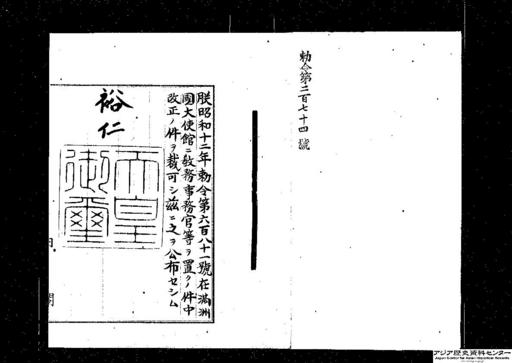 勅令第二百七十四號
朕昭和十二年勅令第六百八十一號在滿洲
國大使館ニ教務事務官等ヲ置クノ件中
改正ノ件ヲ裁可シ茲ニ之ヲ公布セシム
裕仁
天皇
御璽
アジア歴史資料センター
Japan Center for Asian Historical Records